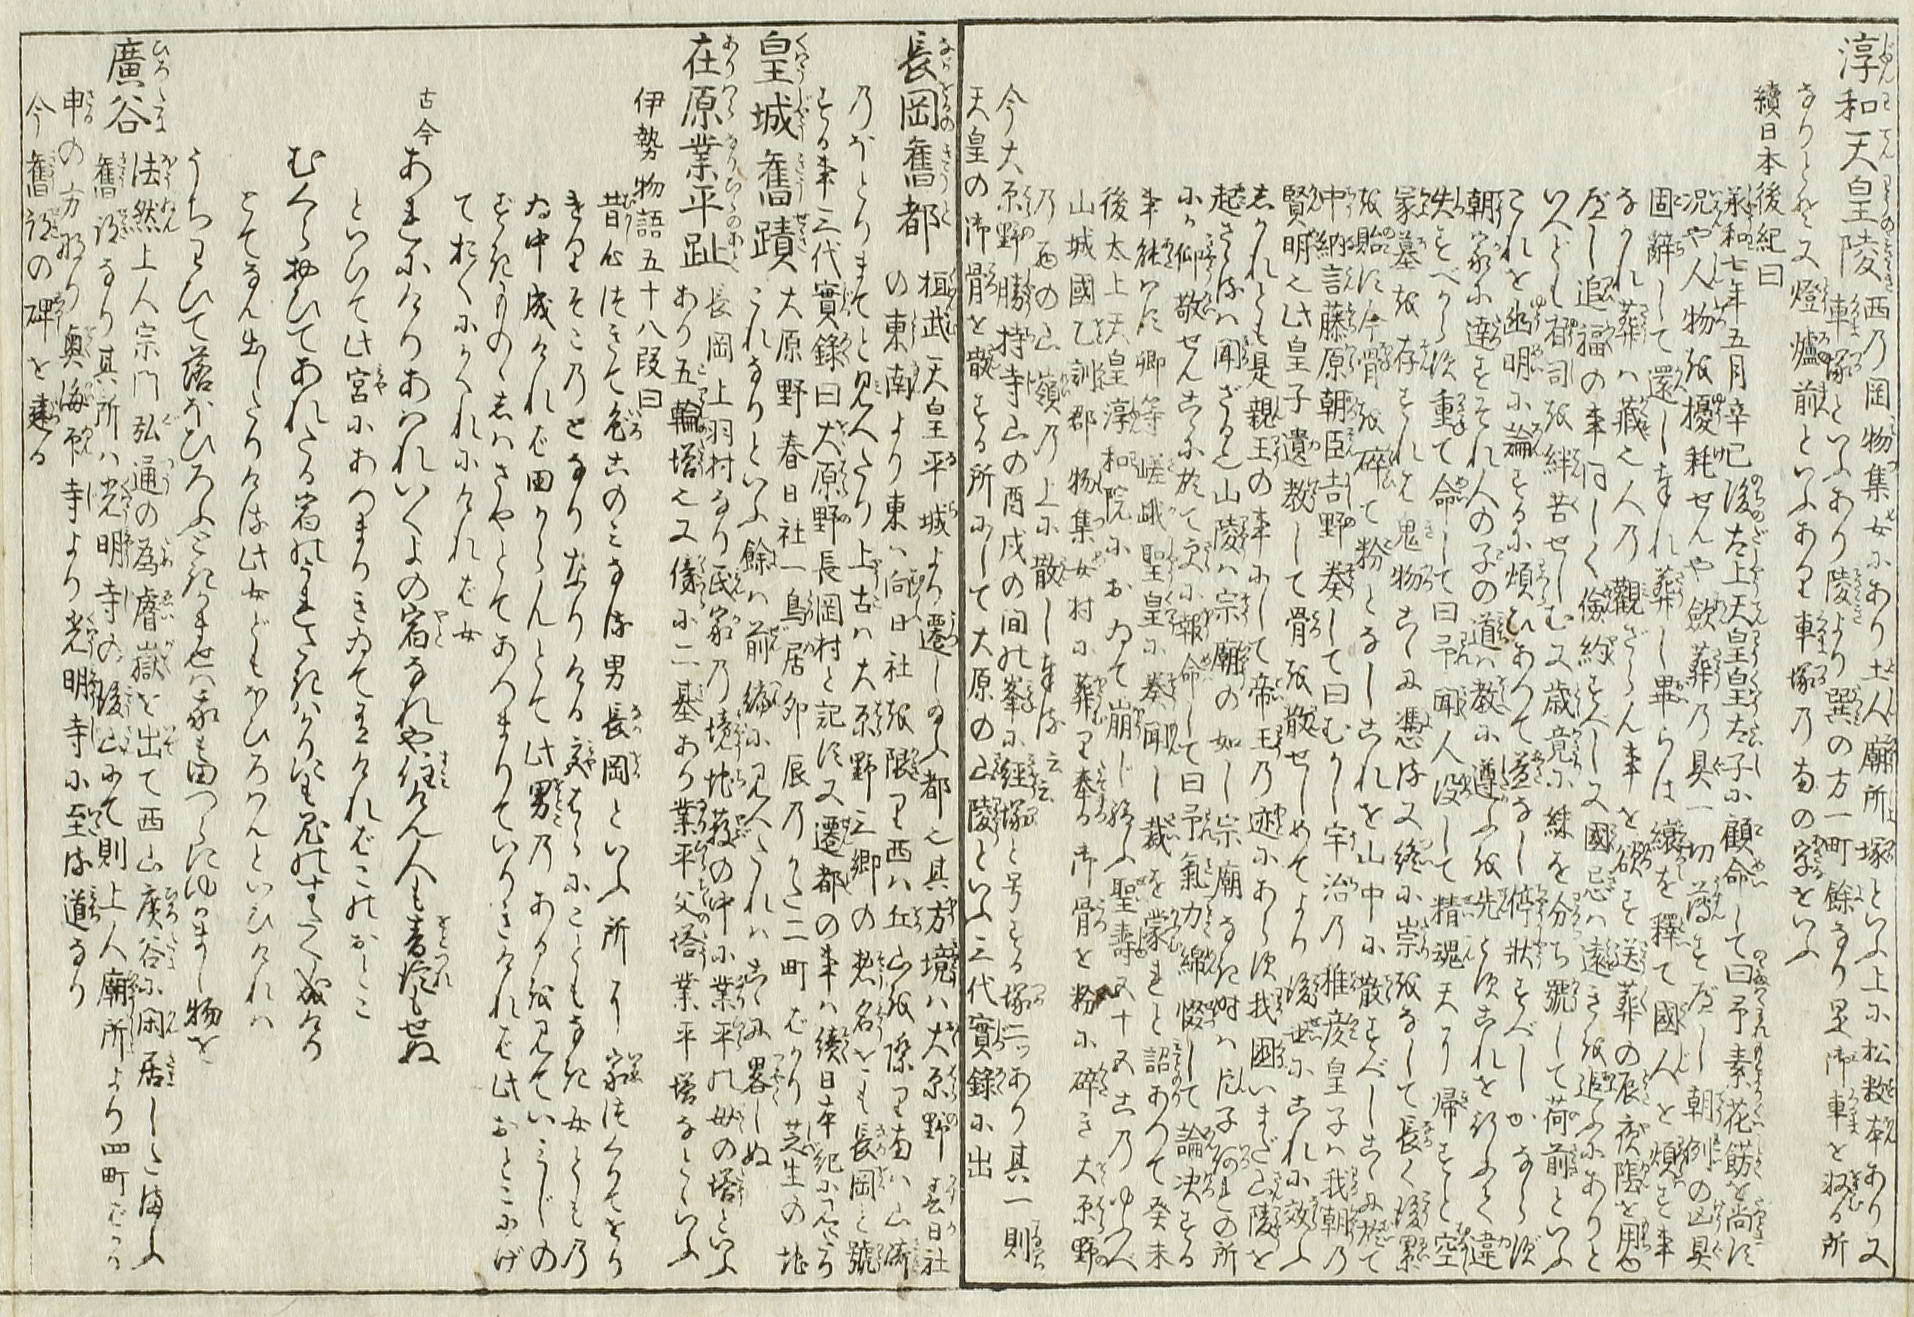 淳和天皇陵 西乃岡物集女にあり土人廟所塚といふ上に松数本あり又
車塚といふあり陵より巽の方一町餘なり是御車を収る所
なりとぞ又燈爐前といふあり車塚乃南の字をいふ
續日本後紀曰
承和七年五月辛巳後太上天皇皇太子に顧命して曰予素花餝を尚ず
況や人物を擾耗せんや斂葬乃具一切薄を
固辭して還し奉れ葬し畢らは縗を釋て國人を煩す事
なかれ葬ハ藏也人乃觀ざらん事を欲す送葬の辰夜陰を用
べし追福の事同しく倹約すべし又國忌ハ遠きを追ふにありと
いへども有司を絆苦せしむ又歳竟に綵を分ち號して荷前といふ
これを幽明に論する煩ひありて益なし停状すべしかならず
朝家に達すそれ人の子の道ハ教に遵ふを先とす
失すべからず重て命して曰予聞人没して精魂天に帰すと空
冢墓を存すれば鬼物こゝに憑る又終に祟をなして長く後累
を貽す今骨を碎て粉となしこれを山中に散すべしこゝに於て
中納言藤原朝臣吉野奏して曰むかし宇治乃稚彦皇子ハ我朝乃
賢明也此皇子遺教して骨を散せしめてより後世これに效ふ
しかれども是親王の事にして帝王乃迹にあらず我國いまだ山陵を
起さゞるハ聞ざる也山陵ハ宗廟の如し宗廟なき時ハ臣子何れの所
にか仰敬せんこゝに於て又報命して曰予氣力綿惙して論決する
事能ハず卿等嵯峨聖皇に奏聞し裁を蒙れと詔ありて癸未
後太上天皇淳和院において崩じ給ふ聖壽五十五
山城國乙訓郡物集女村に葬り奉る御骨を粉に碎き大原野
乃西の山嶺乃上に散し奉る云云
今大原野勝持寺山の酉戌の間の峯に經塚と号する塚二ツあり其一則
天皇の御骨を散する所にして大原の山陵といふ三代實錄に出
長岡舊都 桓武天皇平城より遷し給ふ都也其方境ハ大原野春日社
の東南より東ハ向日社を限り西ハ丘山を際り南ハ山崎
乃ほとりまてと見へたり上古ハ大原野三郷の惣名をも長岡と號
する事三代實錄曰大原野長岡村と記す又遷都の事ハ續日本紀に見へたり
皇城舊蹟 大原野春日社一鳥居卯辰乃かた二町ばかり芝生の地
これなりといふ餘ハ前編に見へたれハこゝに畧しぬ
在原業平趾 長岡上羽村なり民家乃境地薮の中に業平の母の塔といふ
あり五輪塔也又傍に二基あり業平父塔業平塔などゝいふ
伊勢物語五十八段曰
昔心つきて色このミなる男長岡といふ所に家つくりてをり
けりそこ乃となりなりける宮ばらにこともなき女ども乃
ゐ中成ければ田からんとて此男乃あるを見ていミじの
すきものゝしハさやとてあつまりていりきければ此おとこにげ
ておくにかくれにければ女
古今 あれにけりあはれいくよの宿なれや住けん人も音信もせぬ
といひて此宮にあつまりきゐて有ければこのおとこ
むぐら生ひてあれたる宿のうれたきハかりにも鬼のすだく成けり
とてなん出したりける此女どもほひろはんといひければ
うちわびて落ほひろふときかませは我も田つらにゆかまし物を
廣谷 法然上人宗門弘通の為膚嶽を出て西山廣谷に閑居したまふ
舊跡なり其所ハ光明寺の後山にて則上人廟所より四町ばかり
申の方なり奥海印寺より光明寺に至る道なり
今舊跡の碑を建る